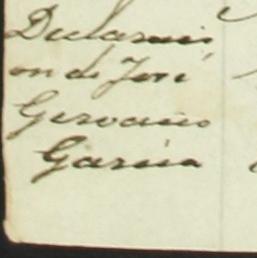 Declaraci
on de José
Gervacio
Garcia